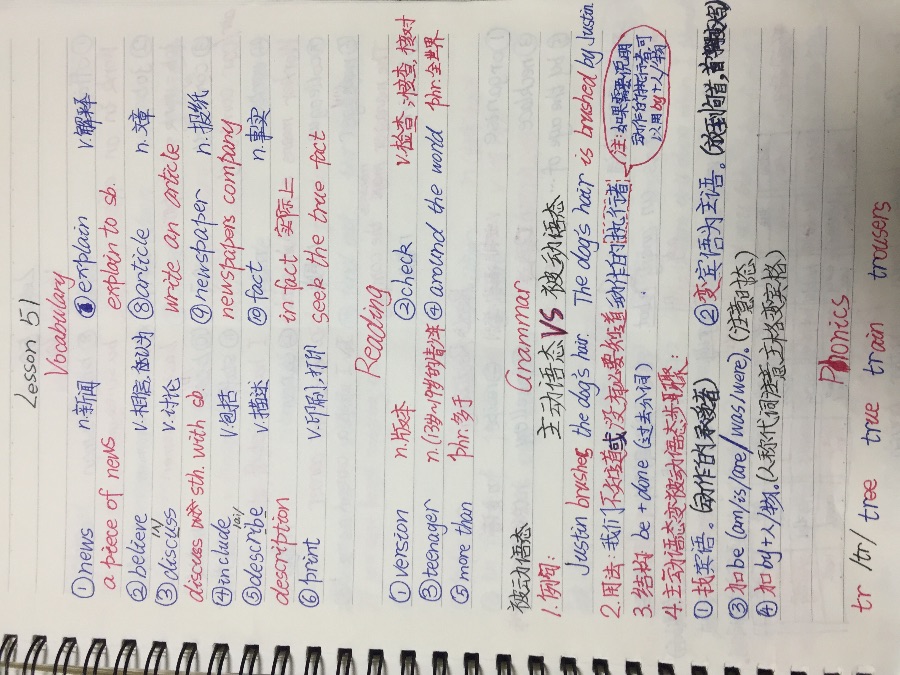 Lesson 51
Vocabulary
①news n.新闻 ⑦explain v.解释
a piece of news explain to sb.
②believe v.相信,认为 ⑧article n.文章
③discuss v.讨论 write an article
discuss sth. with sb. ⑨newspaper n.报纸
④include v.包括 newspapers company
⑤describe v.描述 ⑩fact n.事实
description in fact 实际上
⑥print v.印刷,打印 seek the true fact
Reading
①version n.版本 ②check v.检查,核对
③teenager n.(13岁~19岁的)青少年 ④around the world phr.全世界
⑤more than phr.多于
Grammar
被动语态 主动语态 VS 被动语态
1.例句: Justin brushes the dog's hair. The dog's hair is brushed by Justin
2.用法:我们不知道或没有必要知道动作的执行者
注:如果需要说明
动作的执行者可
以用by+人/物
3.结构: be + done (过去分词)
4.主动语态变被动语态步骤:
①找宾语。(动作的承受者) ②变宾语为主语。
③加be (am/is/are/was/were)。(注意时态)
④加by+人/物。(人称代词注意主格变宾格)
Phonics
tr /tr/ tree true train trousers